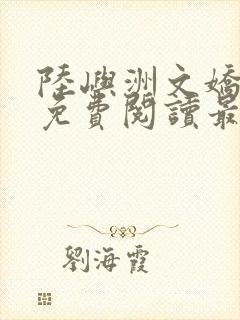 陸嶼洲文嬌
免費閱讀最
劉海霞